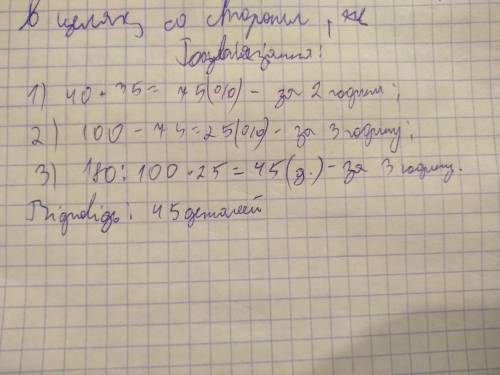 в целях, со сторони, же
Розв'язання:
1) 40 + 35 = 75 (%) - за 2 години;
2) 100 - 75 = 25 (%) - за 3 годину;
3) 180 : 100 · 25 = 45 (д.) - за 3 годину.
Відповідь: 45 деталей